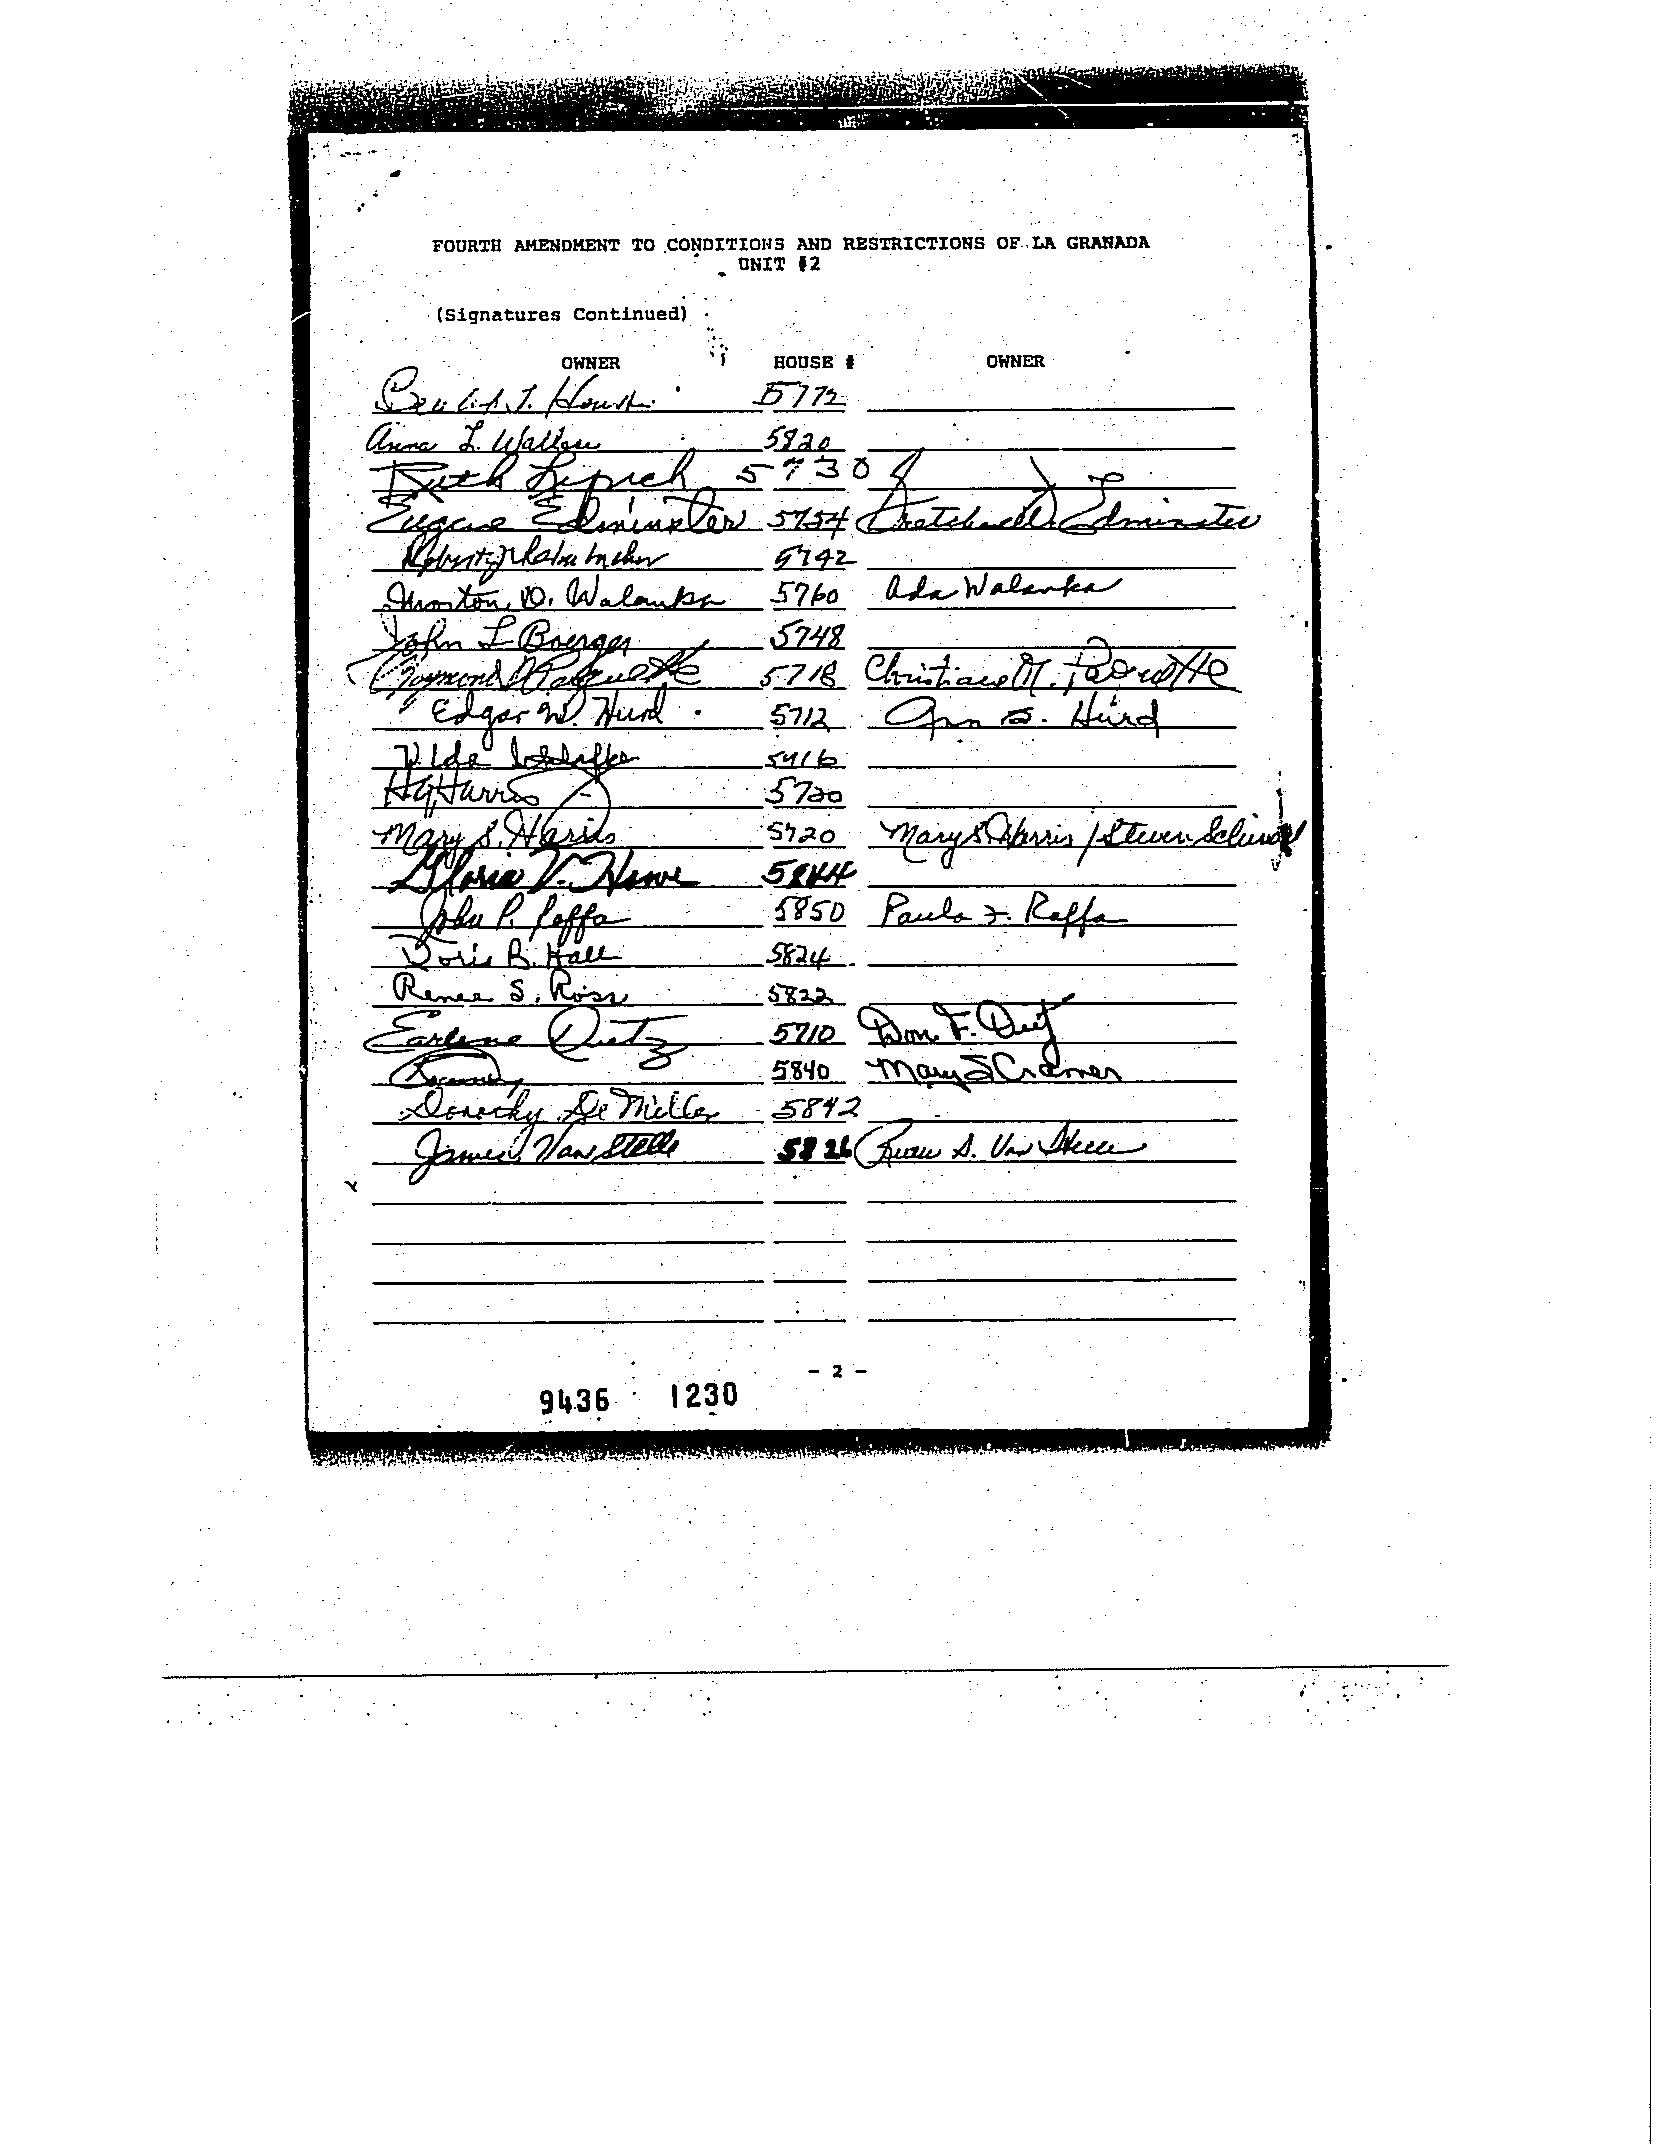 FOURTH AMENDMENT TO CONDITIONS AND RESTRICTIONS OF LA GRANADA
UNIT #2
(Signatures Continued)
OWNER HOUSE # OWNER
5772
Anna L. Wallen 5820
Ruth Lipich 5730
Eugene Edminster 5754 Edminster
5742
D. Walanka 5760 Ada Walanka
John L Boerger 5748
Raymond Paquette 5718 Christiane M. Paquette
Edgar W. Hurd 5712 Ann B. Hurd
5416
H Harris 5720
Mary S. Harris 5720 Mary S Harris / Steven
Gloria V. Howe 5844
John P. Raffa 5850 Paula F. Raffa
Doris B. Hall 5824
Renee S. Ross 5822
Earlene Dietz 5710 Don F. Dietz
5840 Mary S Cramer
Dorothy De Miller 5842
James Van Stelle 5826 S. Van Stelle
- 2 -
9436 1230